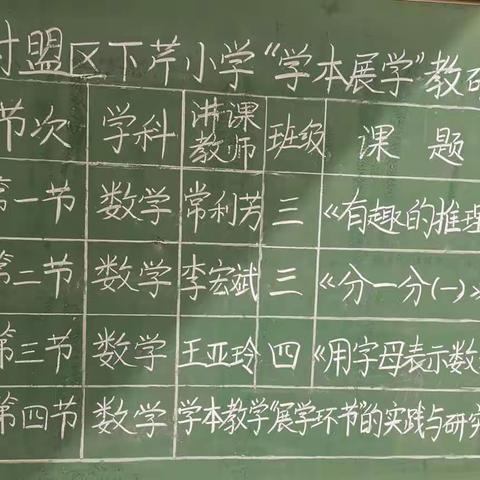 村盟区下芹小学“学本展学”教研
节次 学科 讲课教师 班级 课 题
第一节 数学 常利芳 三 《有趣的推理
第二节 数学 李宏斌 三 《分一分(一)》
第三节 数学 王亚玲 四 《用字母表示数
第四节 数学 学本教学“展学环节”的实践与研究